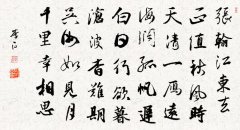 張翰江東去
正值秋風時
天清一雁遠
海闊孤帆遲
白日行欲暮
滄波杳難期
吳洲如見月
千里幸相思